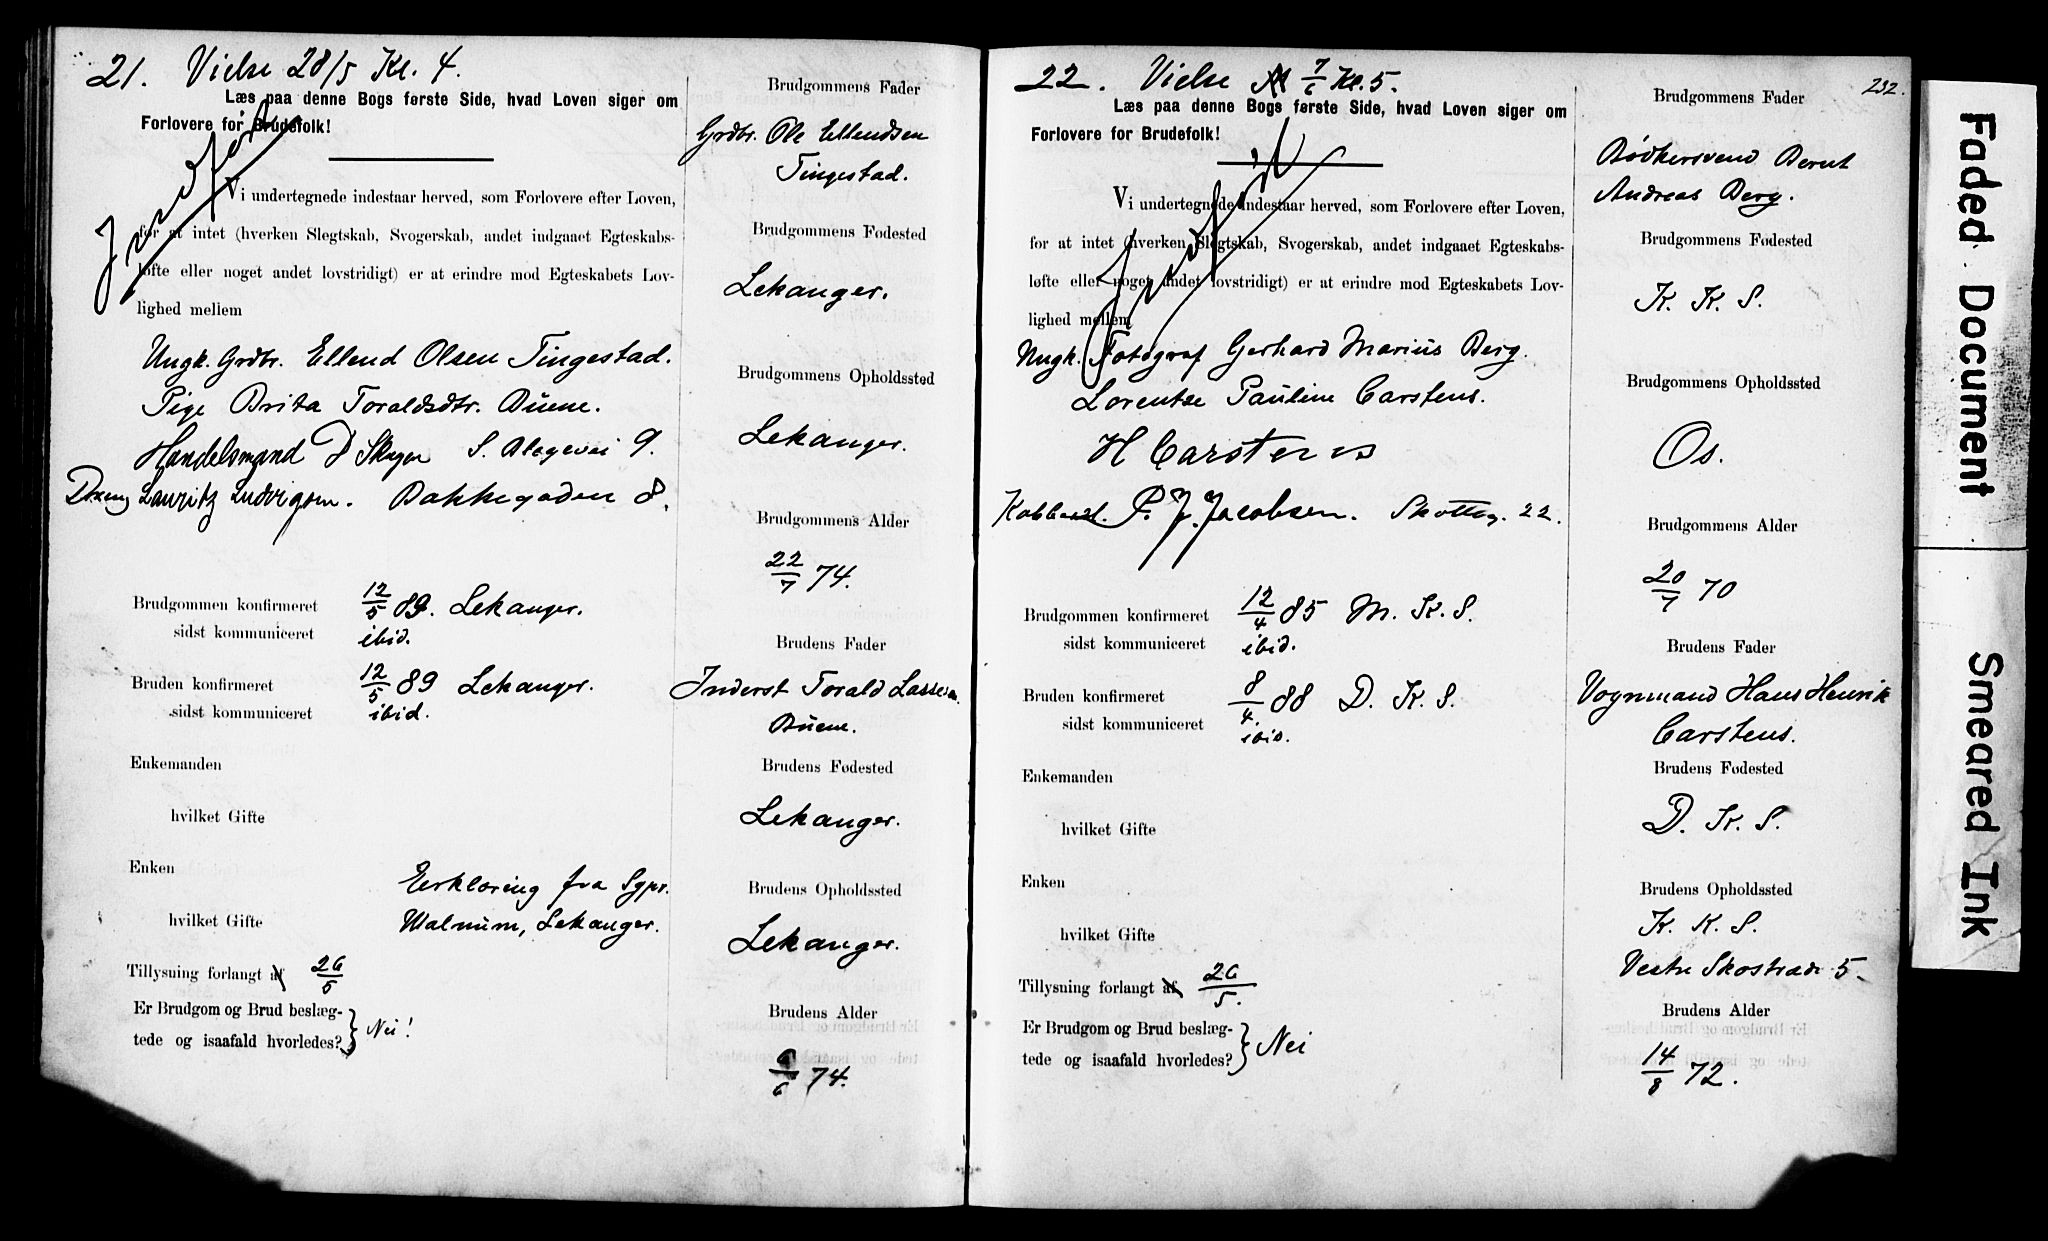 21. Vielse 28/5 Kl. 4.
Læs paa denne Bogs første Side, hvad Loven siger om
Forlovere for Brudefolk!
Indført
Vi undertegnede indestaar herved, som Forlovere efter Loven,
for at intet (hverken Slegtskab, Svogerskab, andet indgaaet Egteskabs-
løfte eller noget andet lovstridigt) er at erindre mod Egteskabets Lov-
lighed mellem
Ungk. Grdbr. Ellend Olsen Tingestad.
Pige Brita Toraldsdtr. Buene.
Handelsmand S. 9.
Lauritz Ludvigsen. Bakkegaden 8.
Brudgommen konfirmeret 12/5 89. Lekanger.
sidst kommuniceret ibid.
Bruden konfirmeret 12/5 89 Lekanger.
sidst kommuniceret ibid.
Enkemanden
hvilket Gifte
Enken
Erklæring fra Sgpr.
hvilket Gifte Walnum, Lekanger.
Tillysning forlangt af 26/5
Er Brudgom og Brud beslæg-
tede og isaafald hvorledes? } Nei!
Brudgommens Fader
Grdbr. Ole Ellendsen
Tingestad.
Brudgommens Fødested
Lekanger.
Brudgommens Opholdssted
Lekanger.
Brudgommens Alder
22/7 74.
Brudens Fader
Inderst Torald Lassesen
Buene.
Brudens Fødested
Lekanger.
Brudens Opholdssted
Lekanger.
Brudens Alder
/6 74.
22. Vielse 7/6 Kl. 5.
232.
Læs paa denne Bogs første Side, hvad Loven siger om
Forlovere for Brudefolk!
Indført
Vi undertegnede indestaar herved, som Forlovere efter Loven,
for at intet (hverken Slegtskab, Svogerskab, andet indgaaet Egteskabs-
løfte eller noget andet lovstridigt) er at erindre mod Egteskabets Lov-
lighed mellem
Ungk. Fotograf Gerhard Marius Berg.
Lorentze Pauline Carstens.
H Carstens
P. J. Jacobsen. Skotteg. 22.
Brudgommen konfirmeret 12/4 85 M. K. S.
sidst kommuniceret ibid.
Bruden konfirmeret 8/4. 88 D. K. S.
sidst kommuniceret ibid.
Enkemanden
hvilket Gifte
Enken
hvilket Gifte
Tillysning forlangt af 26/5.
Er Brudgom og Brud beslæg-
tede og isaafald hvorledes? } Nei
Brudgommens Fader
Bødkersvend Bernt
Andreas Berg.
Brudgommens Fødested
K. K. S.
Brudgommens Opholdssted
Os.
Brudgommens Alder
20/7 70
Brudens Fader
Vognmand Hans Henrik
Carstens.
Brudens Fødested
D. K. S.
Brudens Opholdssted
K. K. S.
Vestre Skostræde 5.
Brudens Alder
14/8 72.
Faded Document
Smeared Ink